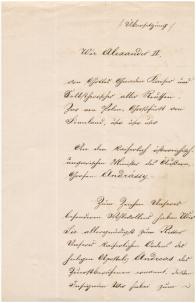 (Übersetzung)
Wir Alexander II.
von Gottes Gnaden Kaiser und
Selbstherrscher aller Reußen,
Zar von Polen, Großfürst von
Finnland, etc etc etc
An den Kaiserlich österreichisch-
ungarischen Minister des Äußern,
Grafen Andrássy.
Zum Zeichen Unseres
besonderen Wohlwollens haben Wir
Sie allergnädigst zum Ritter
Unseres Kaiserlichen Ordens des
heiligen Apostels Andreas des
ernannt, dessen
Insignien Wir